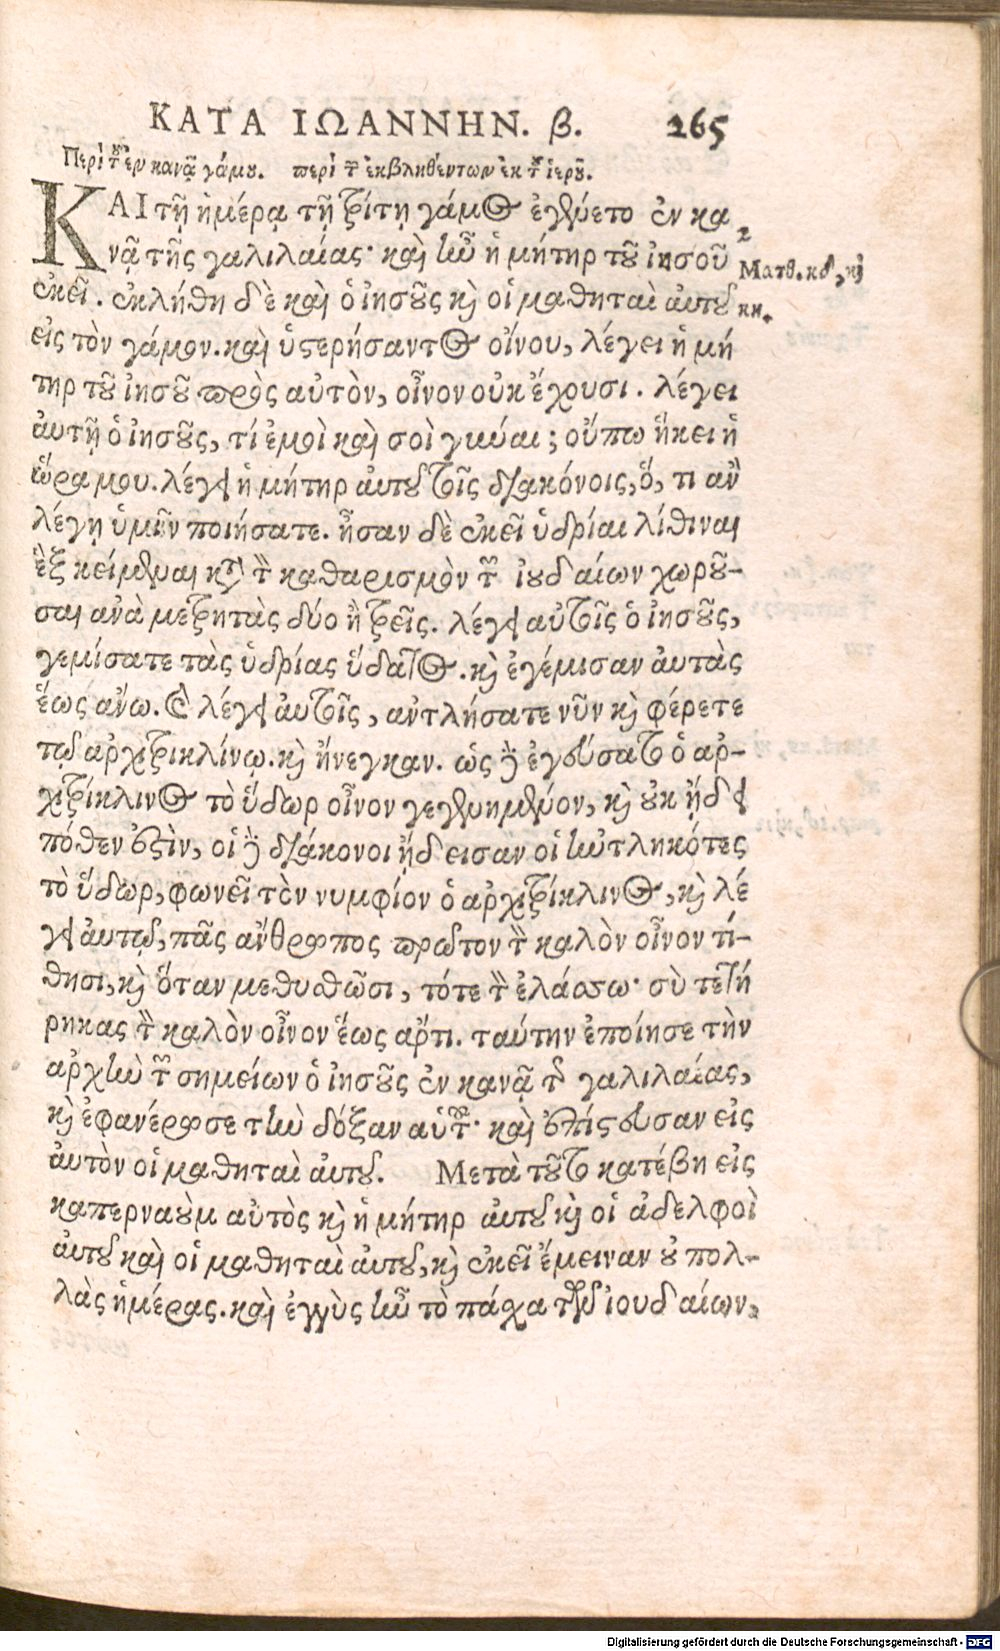 ΚΑΤΑ ΙΩΑΝΝΗΝ. β. 265
Περὶ τοῦ ἐν κανᾷ γάμου. περὶ τῶν ἐκβληθέντων ἐκ τοῦ ἱεροῦ.
ΚΑΙ τῇ ἡμέρᾳ τῇ τρίτῃ γάμος ἐγένετο ἐν κα
νᾷ τῆς γαλιλαίας· καὶ ἦν ἡ μήτηρ τοῦ ἰησοῦ
ἐκεῖ. ἐκλήθη δὲ καὶ ὁ ἰησοῦς καὶ οἱ μαθηταὶ ἀυτοῦ
εἰς τὸν γάμον. καὶ ὑστερήσαντος οἴνου, λέγει ἡ μή
τηρ τοῦ ἰησοῦ πρὸς αὐτὸν, οἶνον οὐκ ἔχουσι. λέγει
ἀυτῇ ὁ ἰησοῦς, τί ἐμοὶ καὶ σοὶ γυναι; οὔπω ἥκει ἡ
ὥρα μου. λέγει ἡ μήτηρ ἀυτοῦ τοῖς διακόνοις, ὅ, τι ἂν
λέγῃ ὑμῖν ποιήσατε. ἦσαν δὲ ἐκεῖ ὑδρίαι λίθιναι
ἓξ κείμεναι κατὰ τὸν καθαρισμὸν τῶν ἰουδαίων χωροῦ-
σαι ἀνὰ μετρητὰς δύο ἢ τρεῖς. λέγει αὐτοῖς ὁ ἰησοῦς,
γεμίσατε τὰς ὑδρίας ὕδατος. καὶ ἐγέμισαν ἀυτὰς
ἕως ἄνω. καὶ λέγει ἀυτοῖς, ἀντλήσατε νῦν καὶ φέρετε
τῷ ἀρχιτρικλίνῳ. καὶ ἤνεγκαν. ὡς δὲ ἐγεύσατο ὁ ἀρ-
χιτρίκλινος τὸ ὕδωρ οἶνον γεγενημένον, καὶ οὐκ ᾔδει
πόθεν ἐστὶν, οἱ δὲ διάκονοι ᾔδεισαν οἱ ἠντληκότες
τὸ ὕδωρ, φωνεῖ τὸν νυμφίον ὁ ἀρχιτρίκλινος, καὶ λέ
γει ἀυτῷ, πᾶς ἄνθρωπος πρῶτον τὸν καλὸν οἶνον τί-
θησι, καὶ ὅταν μεθυθῶσι, τότε τὸν ἐλάσσω· σὺ τετή
ρηκας τὸν καλὸν οἶνον ἕως ἄρτι. ταύτην ἐποίησε τὴν
ἀρχὴν τῶν σημείων ὁ ἰησοῦς ἐν κανᾷ τῆς γαλιλαίας,
καὶ ἐφανέρωσε τὴν δόξαν αὑτοῦ· καὶ ἐπίστευσαν εἰς
ἀυτὸν οἱ μαθηταὶ ἀυτοῦ. Μετὰ τοῦτο κατέβη εἰς
καπερναοὺμ αὐτὸς καὶ ἡ μήτηρ ἀυτοῦ καὶ οἱ ἀδελφοὶ
ἀυτοῦ καὶ οἱ μαθηταὶ ἀυτοῦ, καὶ ἐκεῖ ἔμειναν οὐ πολ-
λὰς ἡμέρας. καὶ ἐγγὺς ἦν τὸ πάσχα τῶν ἰουδαίων,
2
Ματθ. κδ, καὶ
κη.
Digitalisierung gefördert durch die Deutsche Forschungsgemeinschaft - DFG